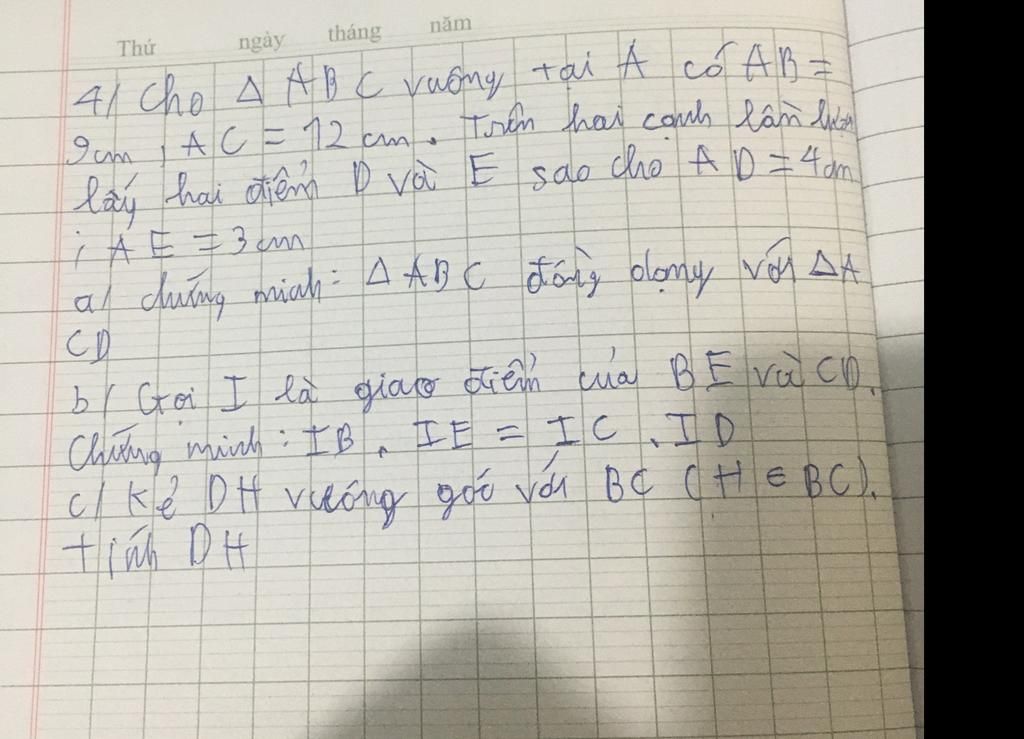 Thứ ngày tháng năm
4/ Cho Δ ABC vuông tại A có AB =
9cm ; AC = 12 cm. Trên hai cạnh lần lượt
lấy hai điểm D và E sao cho AD = 4cm
; AE = 3 cm
a/ chứng minh: Δ ABC đồng dạng với Δ A
CD
b/ Gọi I là giao điểm của BE và CD.
Chứng minh: IB . IE = IC . ID
c/ Kẻ DH vuông góc với BC (H ∈ BC).
tính DH